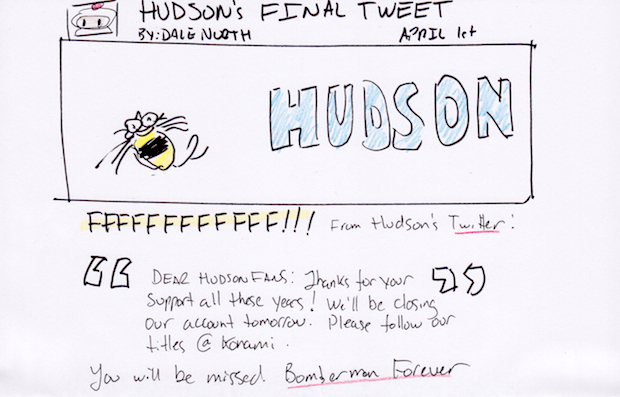 HUDSON'S FINAL TWEET
BY: DALE NORTH APRIL 1st
HUDSON
FFFFFFFFFFFF!!! From Hudson's Twitter:
“ DEAR HUDSON FANS: Thanks for your ”
support all these years! We'll be closing
our account tomorrow. Please follow our
titles @ Konami.
You will be missed. Bomberman Forever